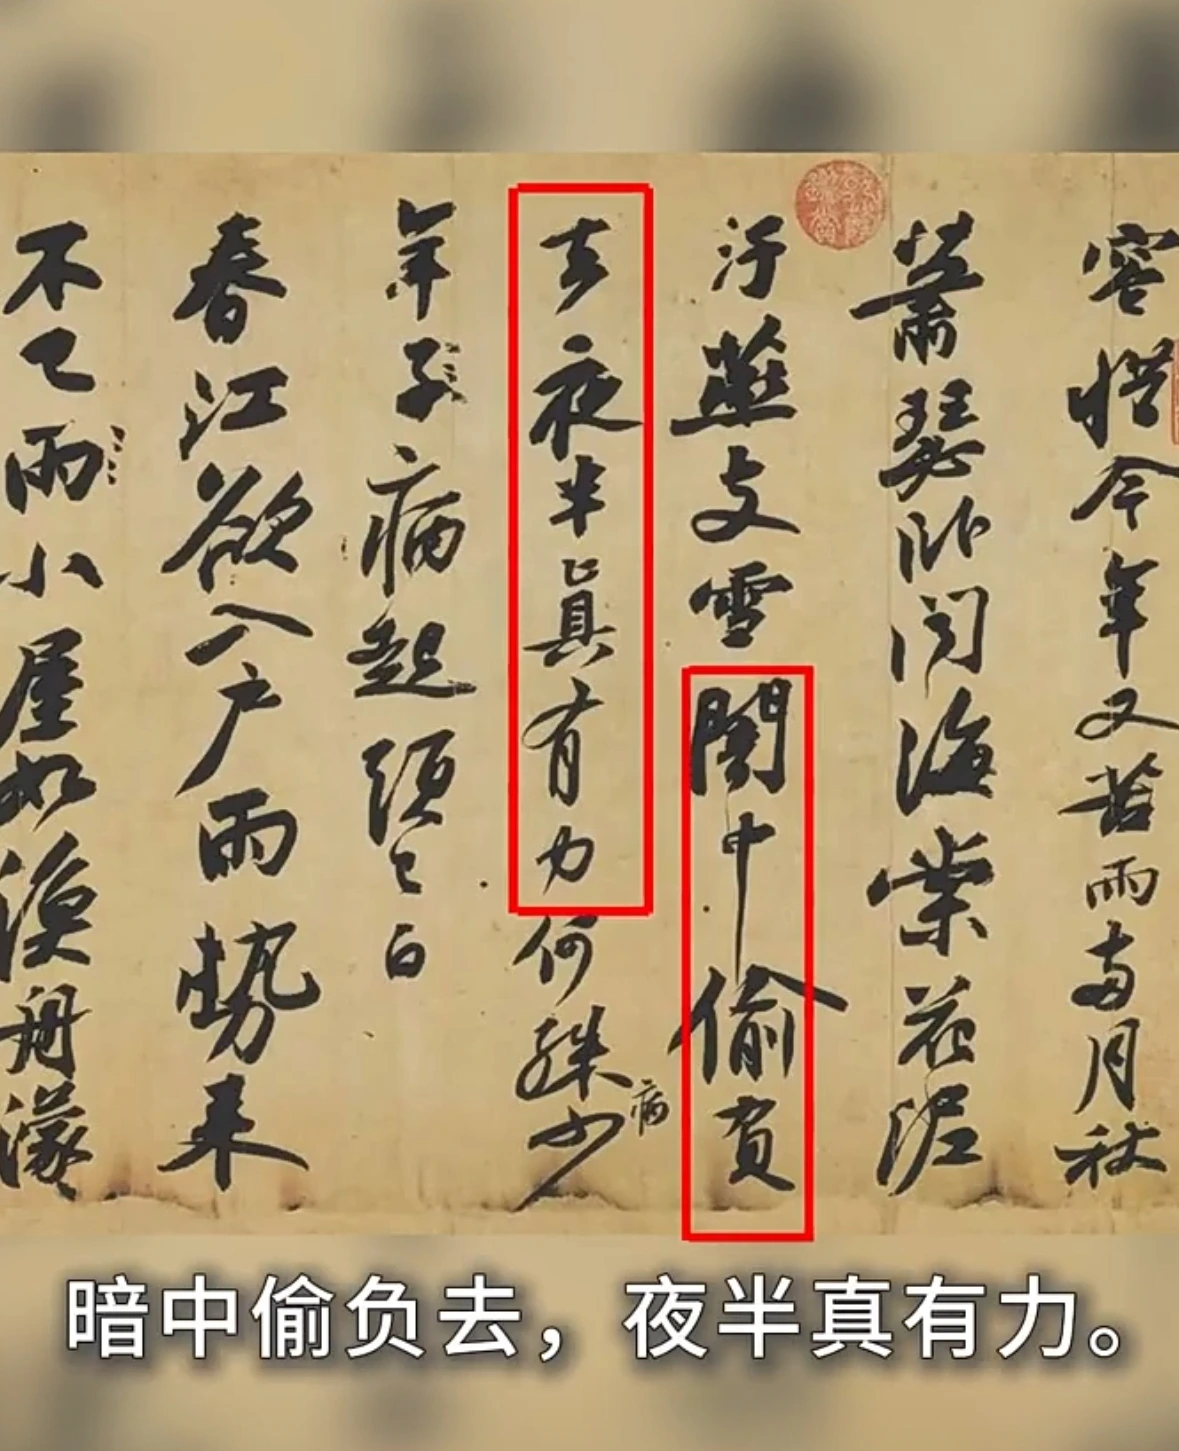 容惜今年又苦雨两月秋
蕭瑟卧闻海棠花泥
汙燕支雪闇中偷負
去夜半真有力何殊少
病
年子病起須已白
春江欲入户雨勢来
不已雨小屋如漁舟濛
暗中偷负去，夜半真有力。